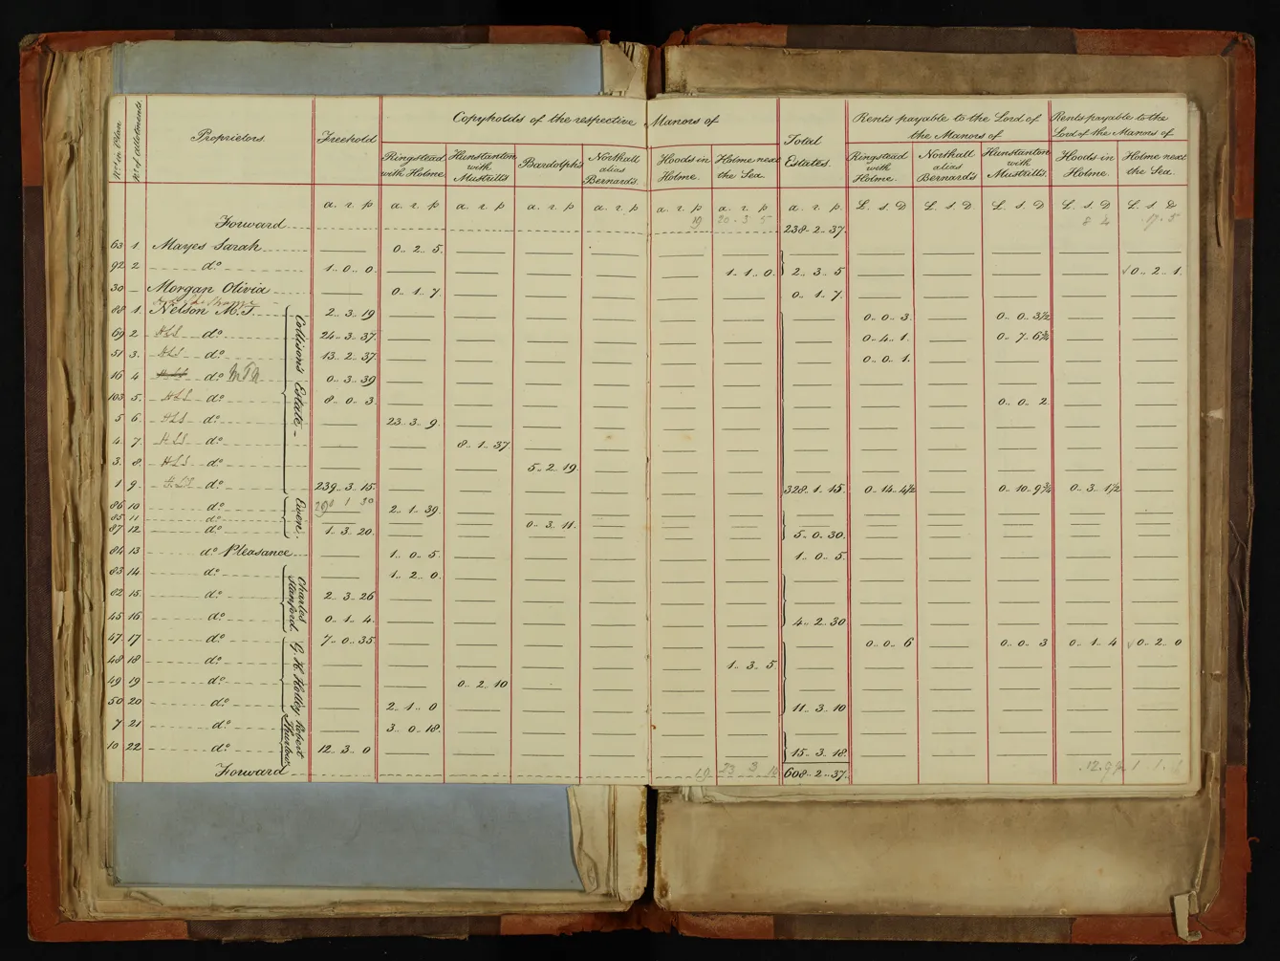 Nos. in Plan
No. of allotments.
Proprietors
Freehold
Copyholds of the respective Manors of
Ringstead with Holme
Hunstanton with Mustrills
Bardolphs
Northall alias Bernard's
Hoods in Holme.
Holme next the Sea.
Total Estates.
Rents payable to the Lord of the Manors of
Ringstead with Holme.
Northall alias Bernard's
Hunstanton with Mustrills.
Rents payable to the Lord of the Manors of
Hoods in Holme.
Holme next the Sea.
a. r. p a. r. p a. r. p a. r. p a. r. p a. r. p a. r. p a. r. p £. s. D £. s. D £. s. D £. s. D £. s. D
Forward 19 20. 3 5 238. 2. 37. 8 4 17. 5
63 1. Mayes Sarah 0. 2. 5.
92 2 do. 1. 0. 0. 1. 1. 0. 2. 3. 5 0. 2. 1.
30 Morgan Olivia 0. 1. 7. 0. 1. 7.
88 1. Nelson M. J. 2. 3. 19 0. 0. 3. 0. 0. 3½
69 2 HLS do. 24. 3. 37. 0. 4. 1. 0. 7. 6¾
51 3. HLS do. 13. 2. 37. 0. 0. 1.
16 4 do. 0. 3. 39
103 5. HLS do. 8. 0. 3. 0. 0. 2
5 6. HLS do. 23. 3. 9.
4 7. HLS do. 8. 1. 37.
3. 8. HLS do. 5. 2. 19.
1 9. HLS do. 239. 3. 15. 328. 1. 15. 0. 14. 4½ 0. 10. 9¾ 0. 3. 1½
Collison's Estate
86 10 do. 2. 1. 39.
85 11 do. 0. 3. 11.
87 12 do. 1. 3. 20. 5. 0. 30.
Ewen.
84 13 do. Pleasance 1. 0. 5. 1. 0. 5.
83 14 do. 1. 2. 0.
82 15. do. 2. 3. 26
45 16 do. 0. 1. 4. 4. 2. 30
Charles Stanford.
47 17 do. 7. 0. 35. 0. 0. 6 0. 0. 3 0. 1. 4 0. 2. 0
48 18 do. 1. 3. 5.
49 19 do. 0. 2. 10
50 20 do. 2. 1. 0 11. 3. 10
G. H. Holley
7 21 do. 3. 0. 18.
10 22 do. 12. 3. 0 15. 3. 18.
Robert Thurlow
Forward 19 608. 2. 37. 12. 9½ 1. 1.